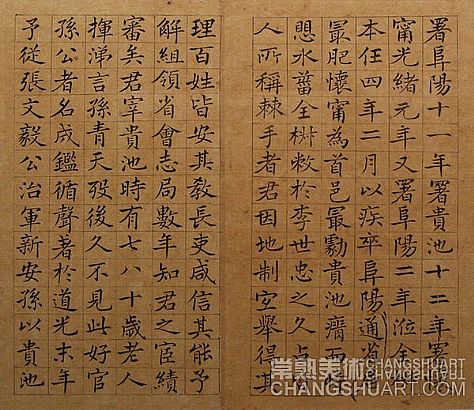 署阜陽十一年署貴池十二年署
甯光緒元年又署阜陽二年涖全
本任四年二月以疾卒阜陽通省
最肥懷甯為首邑最劇貴池瘠
水菑全椒敝於李世忠之久占
人所稱棘手者君因地制宜舉得其
理百姓皆安其敎長吏咸信其能予
解組領省會志局數年知君之宦績
審矣君宰貴池時有七八十歲老人
揮涕言孫青天歿後久不見此好官
孫公者名成鑑循聲著於道光末年
予從張文毅公治軍新安孫以貴池
常熟美術
CHANGSHUART.COM